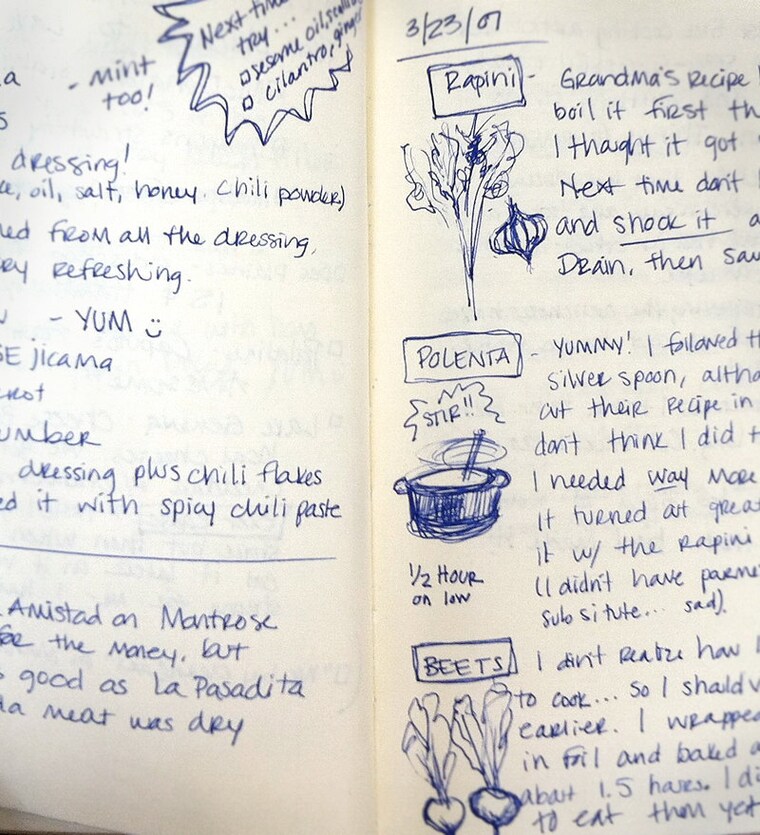 Next time
try...
□ sesame oil, scallion
□ cilantro, ginger
- mint
too!
dressing!
oil, salt, honey chili powder)
from all the dressing,
refreshing.
- YUM
jicama
dressing plus chili flakes
it with spicy chili paste
Amistad on Montrose
for the money, but
good as La Pasadita
meat was dry
3/23/07
Rapini - Grandma's recipe
boil it first th
I thought it got
Next time don't
and shock it a
Drain, then sau
POLENTA - YUMMY! I followed th
silver spoon, altho
STIR!!
cut their recipe in
don't think I did t
I needed way more
it turned out great
it w/ the rapini
1/2 HOUR
on low
(I didn't have parme
subsitute... sad).
BEETS I didn't realize how l
to cook... so I should v
earlier. I wrapped
in foil and baked a
about 1.5 hours. I di
to eat them yet